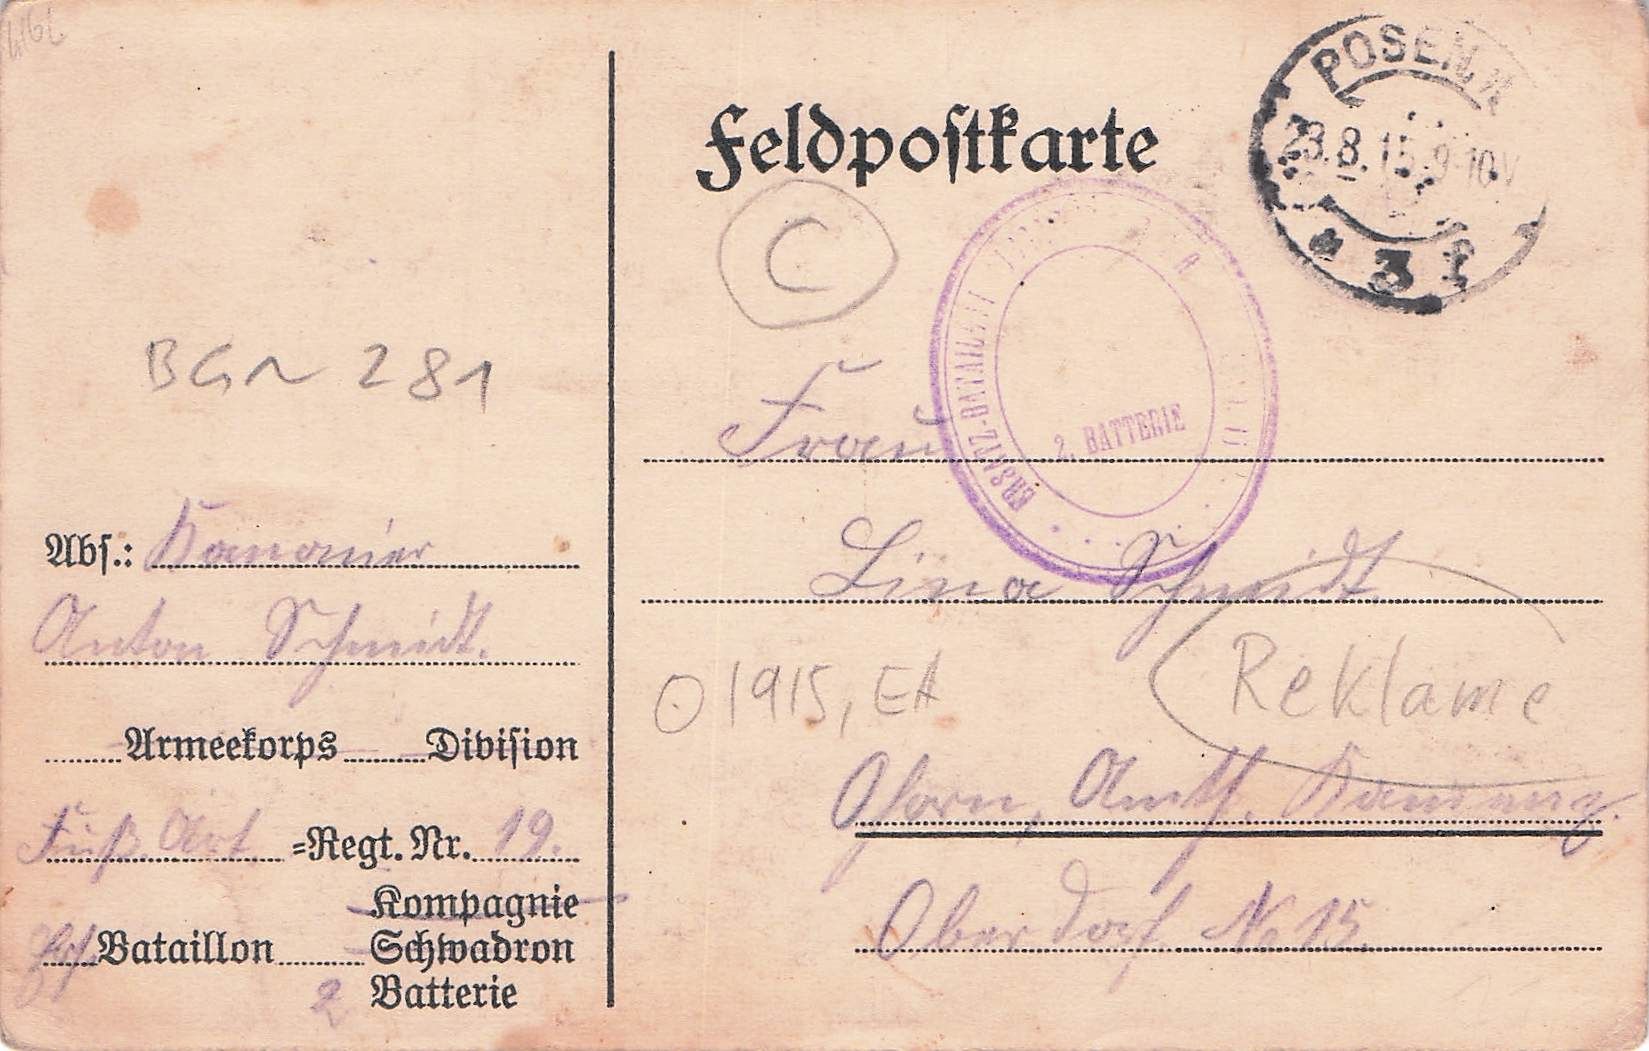 Feldpostkarte
POSEN.
23.8.15.9-10V
* 3 f
C
BGN 281
ERSATZ-BATAILLON
2. BATTERIE
Frau
Lina Schmidt
O 1915, EA
Reklame
Ohorn, Amtsh. Kamenz.
Oberdorf No 15.
Abs.: Kanonier
Anton Schmidt.
Armeekorps Division
Fuß Art =Regt. Nr. 19.
Kompagnie
Ers. Bataillon Schwadron
2 Batterie